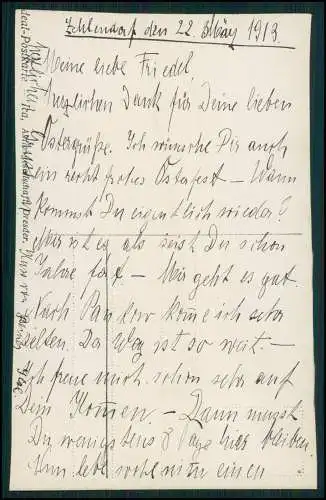 Zehlendorf den 22. März 1913
Meine liebe Friedel,
Herzlichen Dank für Deine lieben
Ostergrüße. Ich wünsche Dir auch
ein recht frohes Osterfest – Wann
kommst Du eigentlich wieder?
Mir ist es als seist Du schon
Jahre fort – Mir geht es gut.
Nach Pankow komme ich sehr
selten. Der Weg ist so weit. –
Ich freue mich schon sehr auf
Dein Kommen. – Dann musst
Du wenigstens 8 Tage hier bleiben.
Nun lebe wohl nimm einen
herzlichen
von Deiner